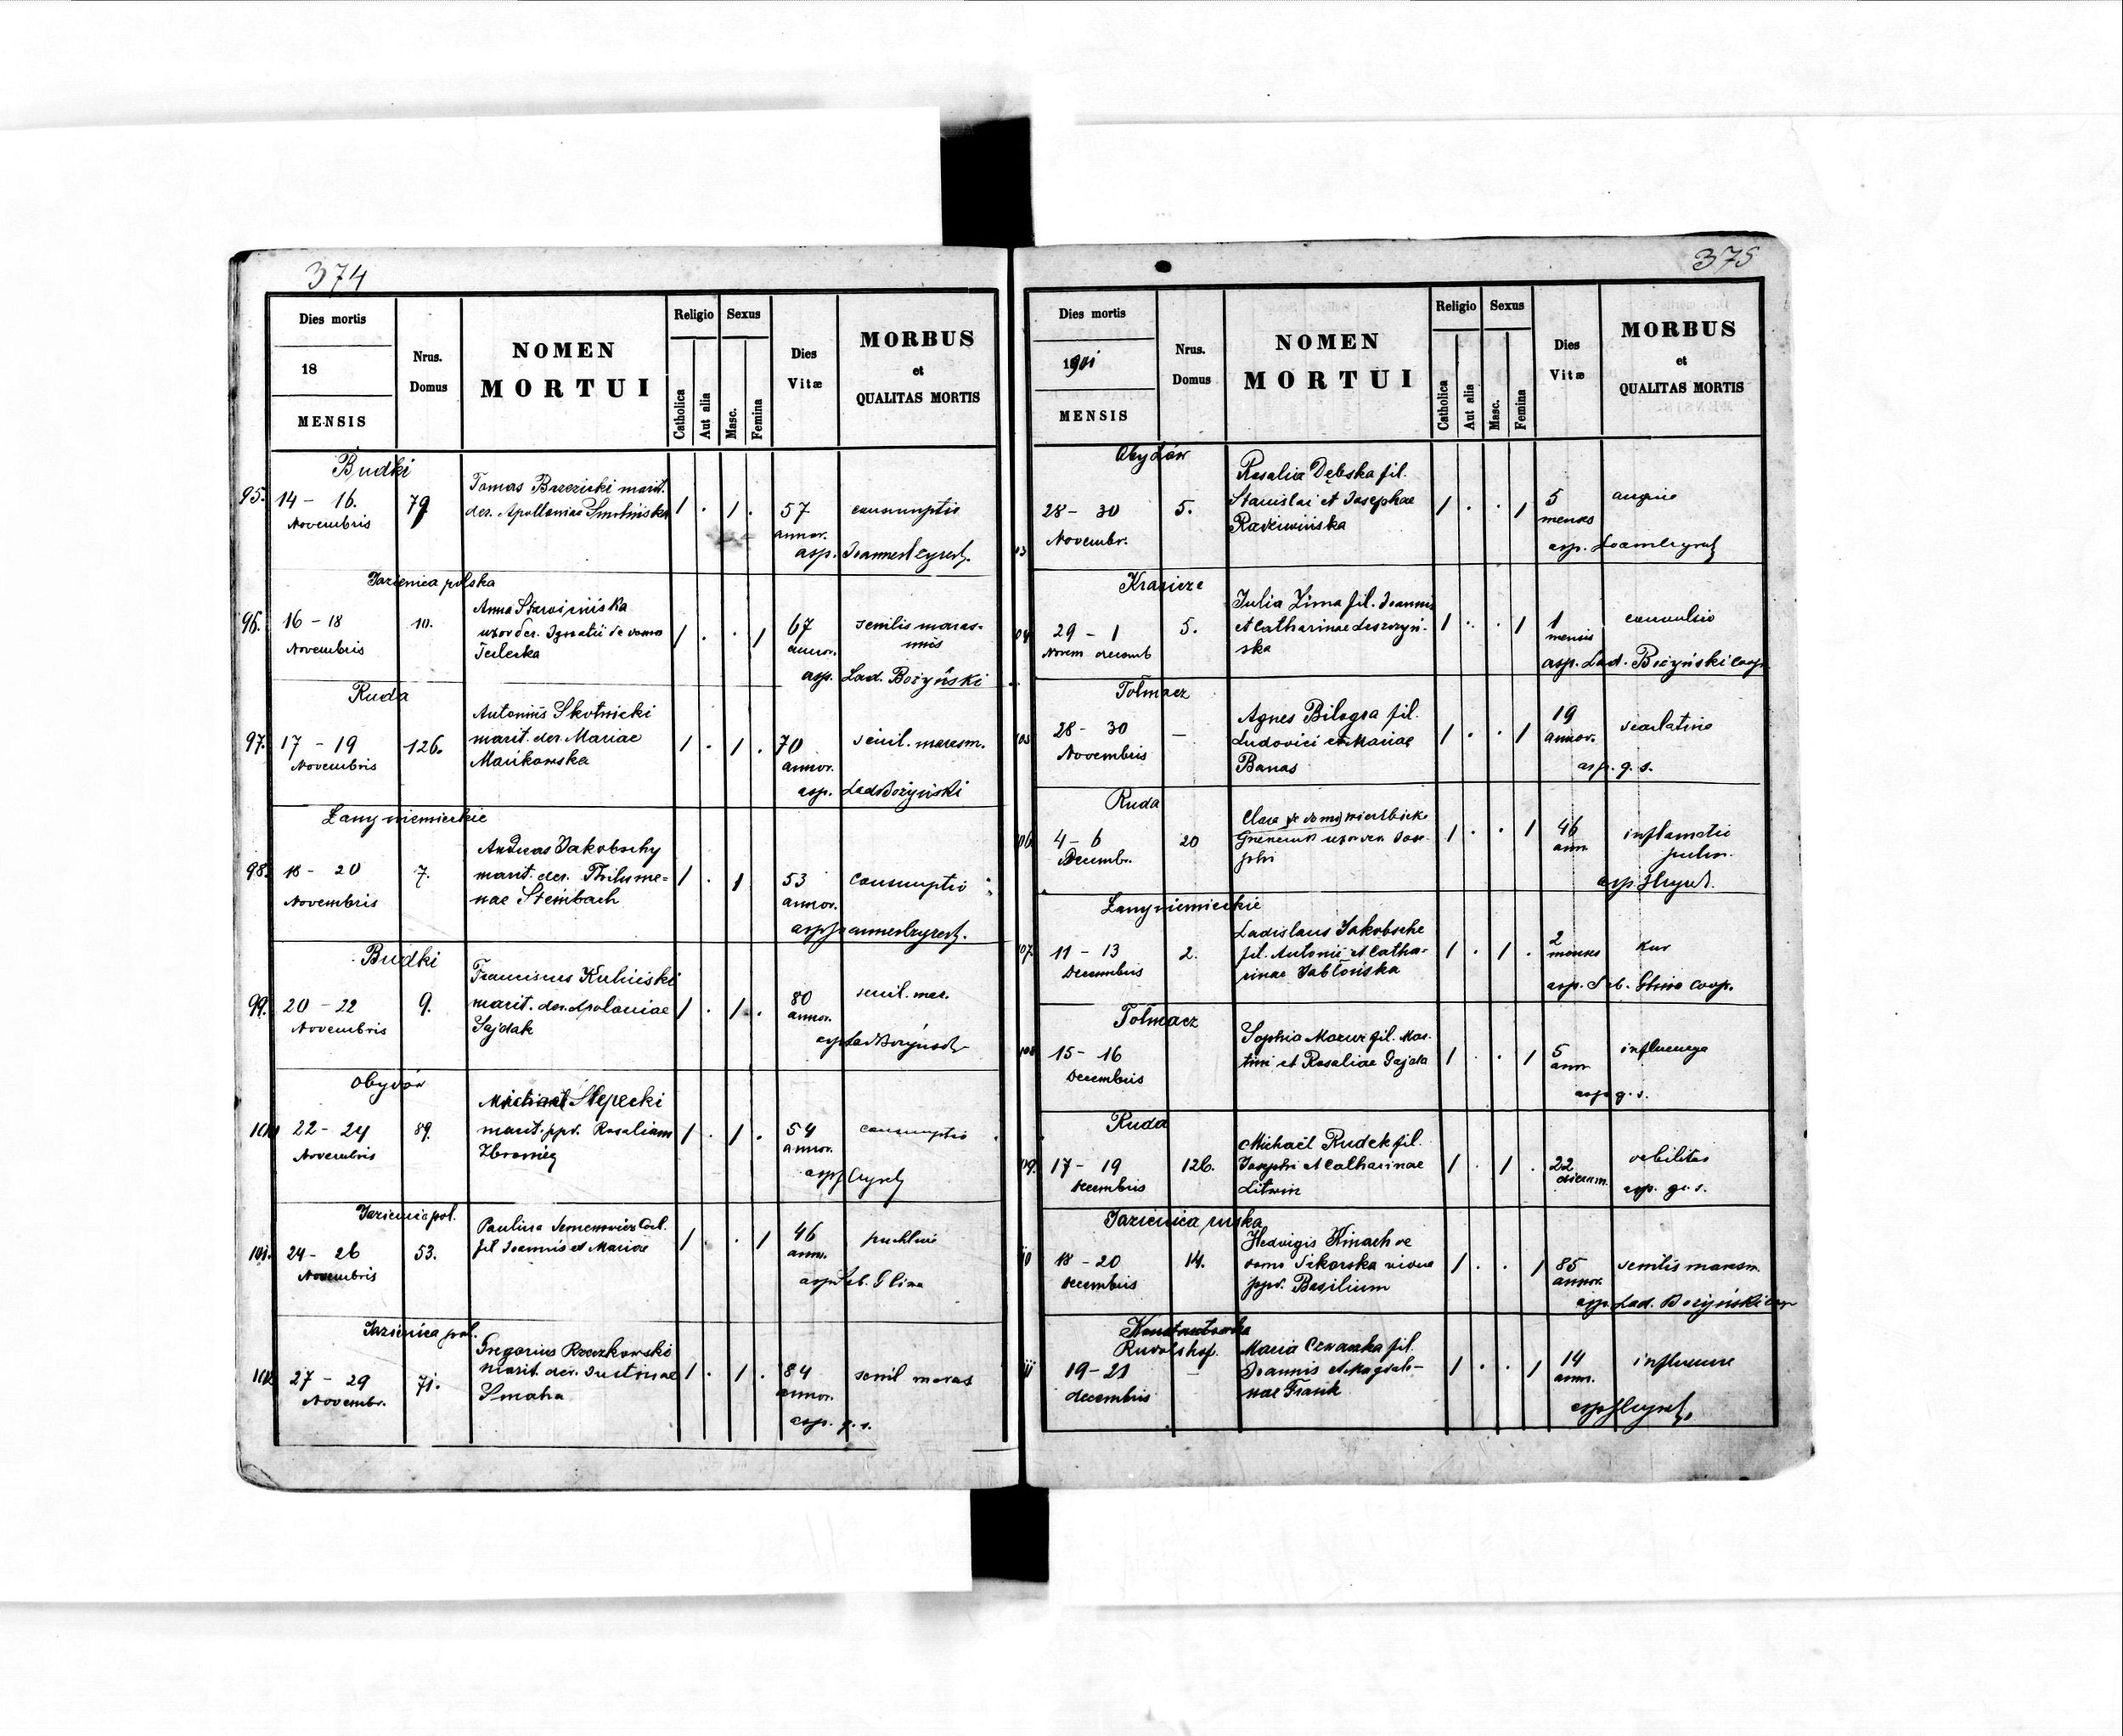 374
Dies mortis
18
MENSIS
Nrus.
Domus
NOMEN
MORTUI
Religio
Catholica
Aut alia
Sexus
Masc.
Femina
Dies
Vitæ
MORBUS
et
QUALITAS MORTIS
Budki
95. 14 - 16. 79
Novembris
Tomas Brzezicki marit.
der. Apolloniae Smolińska
1 . 1 .
57
annor.
consumptio
asp.
Jazienica polska
96. 16 - 18 10.
Novembris
Anna
uxor der. Ignatii de domo
1 . . 1
67
annor.
senilis maras-
mus
asp. Lad. Bożyński
Ruda
97. 17 - 19 126.
Novembris
Antonius Skotnicki
marit. der. Mariae
Mańkowska
1 . 1 .
70
annor.
senil. marasm.
asp. Lad Bożyński
Łany niemieckie
98. 18 - 20 7.
Novembris
Andreas Jakobschy
marit. der. Philome-
nae Steinbach
1 . 1
53
annor.
consumptio
Budki
99. 20 - 22 9.
Novembris
Franciscus Kuliński
marit. der. Apoloniae
Sajdak
1 . 1 .
80
annor.
senil. mar.
Obydów
100 22 - 24 89.
Novembris
Michael Ślepecki
marit. ppd. Rosaliam
1 . 1 .
54
annor.
consumptio
Jazienica pol.
101. 24 - 26 53.
Novembris
Paulina
fil Joannis et Mariae
1 . . 1
46
ann.
asp. Seb. Glina
Jazienica pol.
102 27 - 29 71.
Novembr.
Gregorius Rzeszkowski
marit. der. Justinae
Smaha
1 . 1 .
84
annor.
senil maras
asp. q. s.
375
Dies mortis
1901
MENSIS
Nrus.
Domus
NOMEN
MORTUI
Religio
Catholica
Aut alia
Sexus
Masc.
Femina
Dies
Vitæ
MORBUS
et
QUALITAS MORTIS
Obydów
03 28 - 30 5.
Novembr.
Rosalia Dębska fil.
Stanislai et Josephae
Radziwińska
1 . . 1
5
menses
angina
asp.
Krasicze
04 29 - 1 5.
Novem decemb
Julia Zima fil. Joannis
et Catharinae Leszczyń-
ska
1 . . 1
1
mensis
convulsio
asp. Lad. Bożyński Coop
Tołmacz
105 28 - 30 —
Novembris
Agnes Bilogra fil.
Ludovici et Mariae
Banas
1 . . 1
19
annor.
scarlatina
asp. q. s.
Ruda
106 4 - 6 20
Decembr.
Clara de domo
uxor der. Jose-
phi
1 . . 1
46
ann.
inflamatio
pulm.
Łany niemieckie
107. 11 - 13 2.
Decembris
Ladislaus Jakobsche
fil. Antonii et Catha-
rinae Jabłońska
1 . 1 .
2
menses
kur
asp. Seb. Glina Coop.
Tołmacz
108 15 - 16
Decembris
Sophia Mazur fil. Mar-
tini et Rosaliae Gajda
1 . . 1
5
ann.
influenza
asp q. s.
Ruda
109. 17 - 19 126.
Decembris
Michaël Rudek fil.
Josephi et Catharinae
Litwin
1 . 1 .
22
dierum.
debilitas
asp. q. s.
Jazienica ruska
110 18 - 20 14.
Decembris
Hedvigis Kinach de
domo Sikorska vidua
ppd. Basilium
1 . . 1
85
annor.
senilis marasm.
asp. Lad. Bożyński
Konstantówka
Rudolshof.
111 19 - 21 —
decembris
Maria Czwarka fil.
Joannis et Magdale-
nae Frank
1 . . 1
14
ann.
influenza